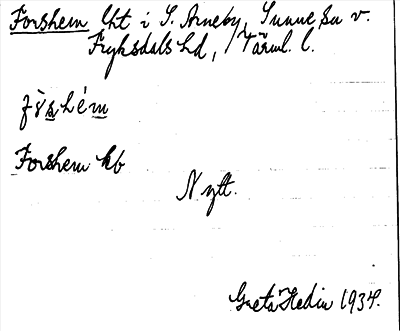 Forshem lht i S. Arneby, Sunne sn v.
Fryksdals hd, Värml. l.
fòs̱hém̱
Forshem kb
Nytt.
Greta Hedin 1934.